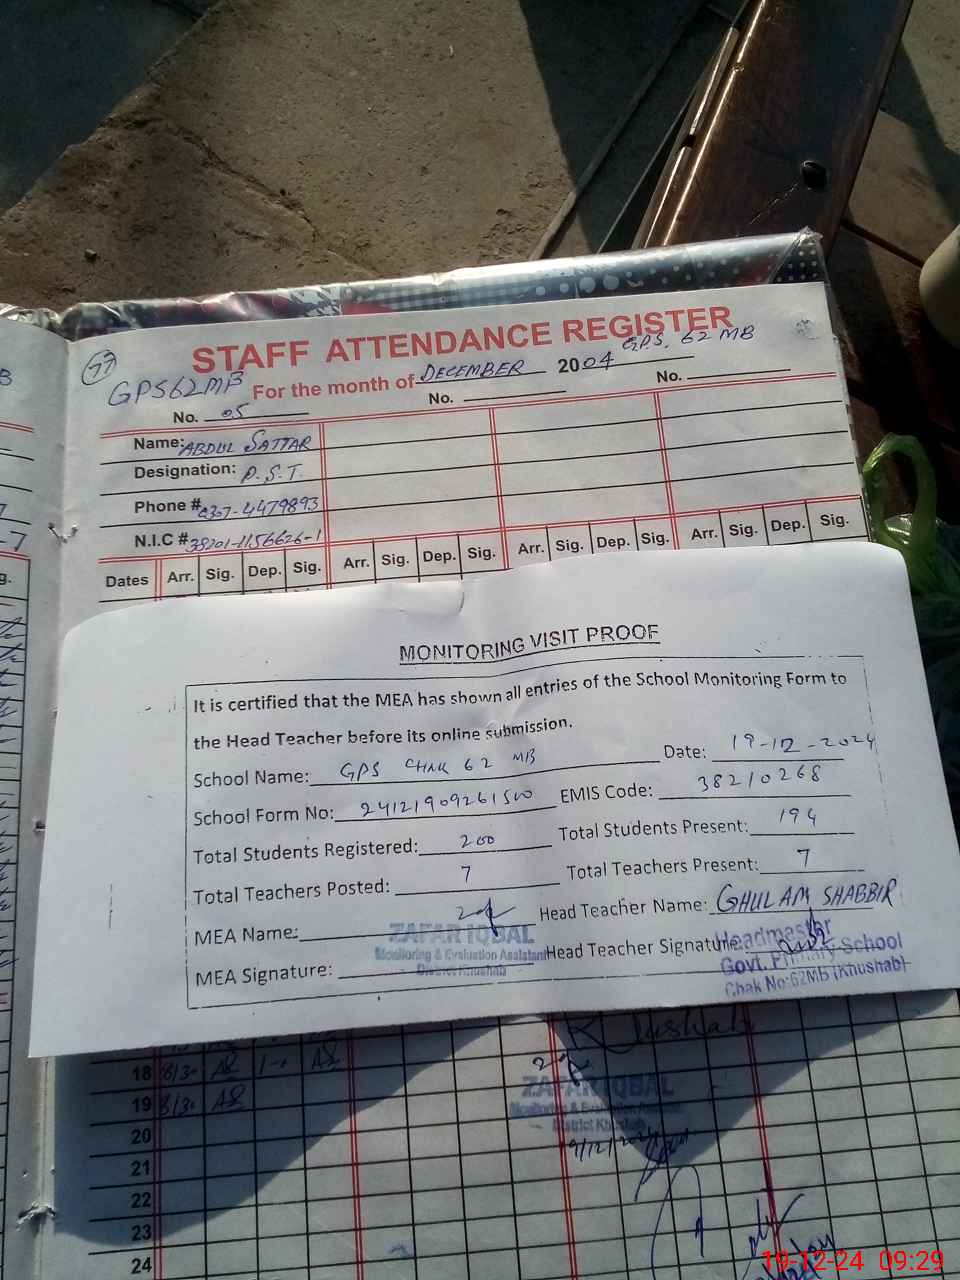 77
STAFF ATTENDANCE REGISTER
GPS 62 MB For the month of DECEMBER 2004 G.P.S. 62 MB
No. 05 No. No.
Name: ABDUL SATTAR
Designation: P.S.T.
Phone # 0307-4479893
N.I.C # 38201-1156626-1
Dates Arr. Sig. Dep. Sig. Arr. Sig. Dep. Sig. Arr. Sig. Dep. Sig. Arr. Sig. Dep. Sig.
MONITORING VISIT PROOF
It is certified that the MEA has shown all entries of the School Monitoring Form to
the Head Teacher before its online submission.
School Name: GPS CHAK 62 MB Date: 19-12-2024
School Form No: 24121909261500 EMIS Code: 38210268
Total Students Registered: 200 Total Students Present: 194
Total Teachers Posted: 7 Total Teachers Present: 7
MEA Name: Head Teacher Name: GHULAM SHABBIR
ZAFAR IQBAL
Monitoring & Evaluation Assistant
District Khushab
MEA Signature: Head Teacher Signature:
Headmaster
Govt. Primary School
Chak No:62MB (Khushab)
Khushab
18 8/30 AS 1-0 AS
19 8/30 AS
ZAFAR IQBAL
Monitoring & Evaluation Assistant
District Khushab
19/12/2024
20
21
22
23
24
19-12-24 09:29